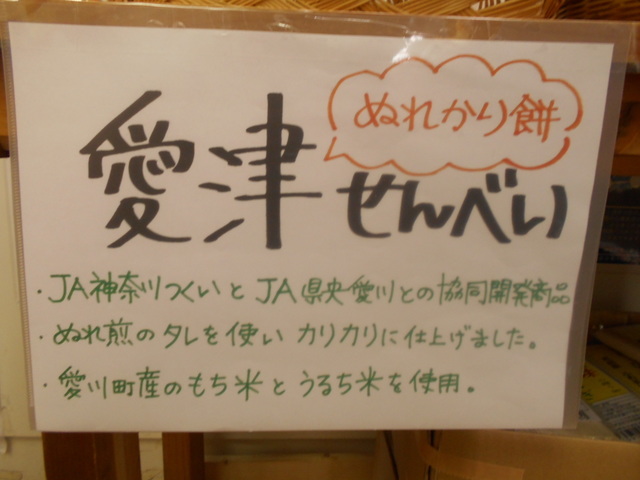 ぬれかり餅
愛津せんべい
・JA神奈川つくいとJA県央愛川との協同開発商品
・ぬれ煎のタレを使いカリカリに仕上げました。
・愛川町産のもち米とうるち米を使用。